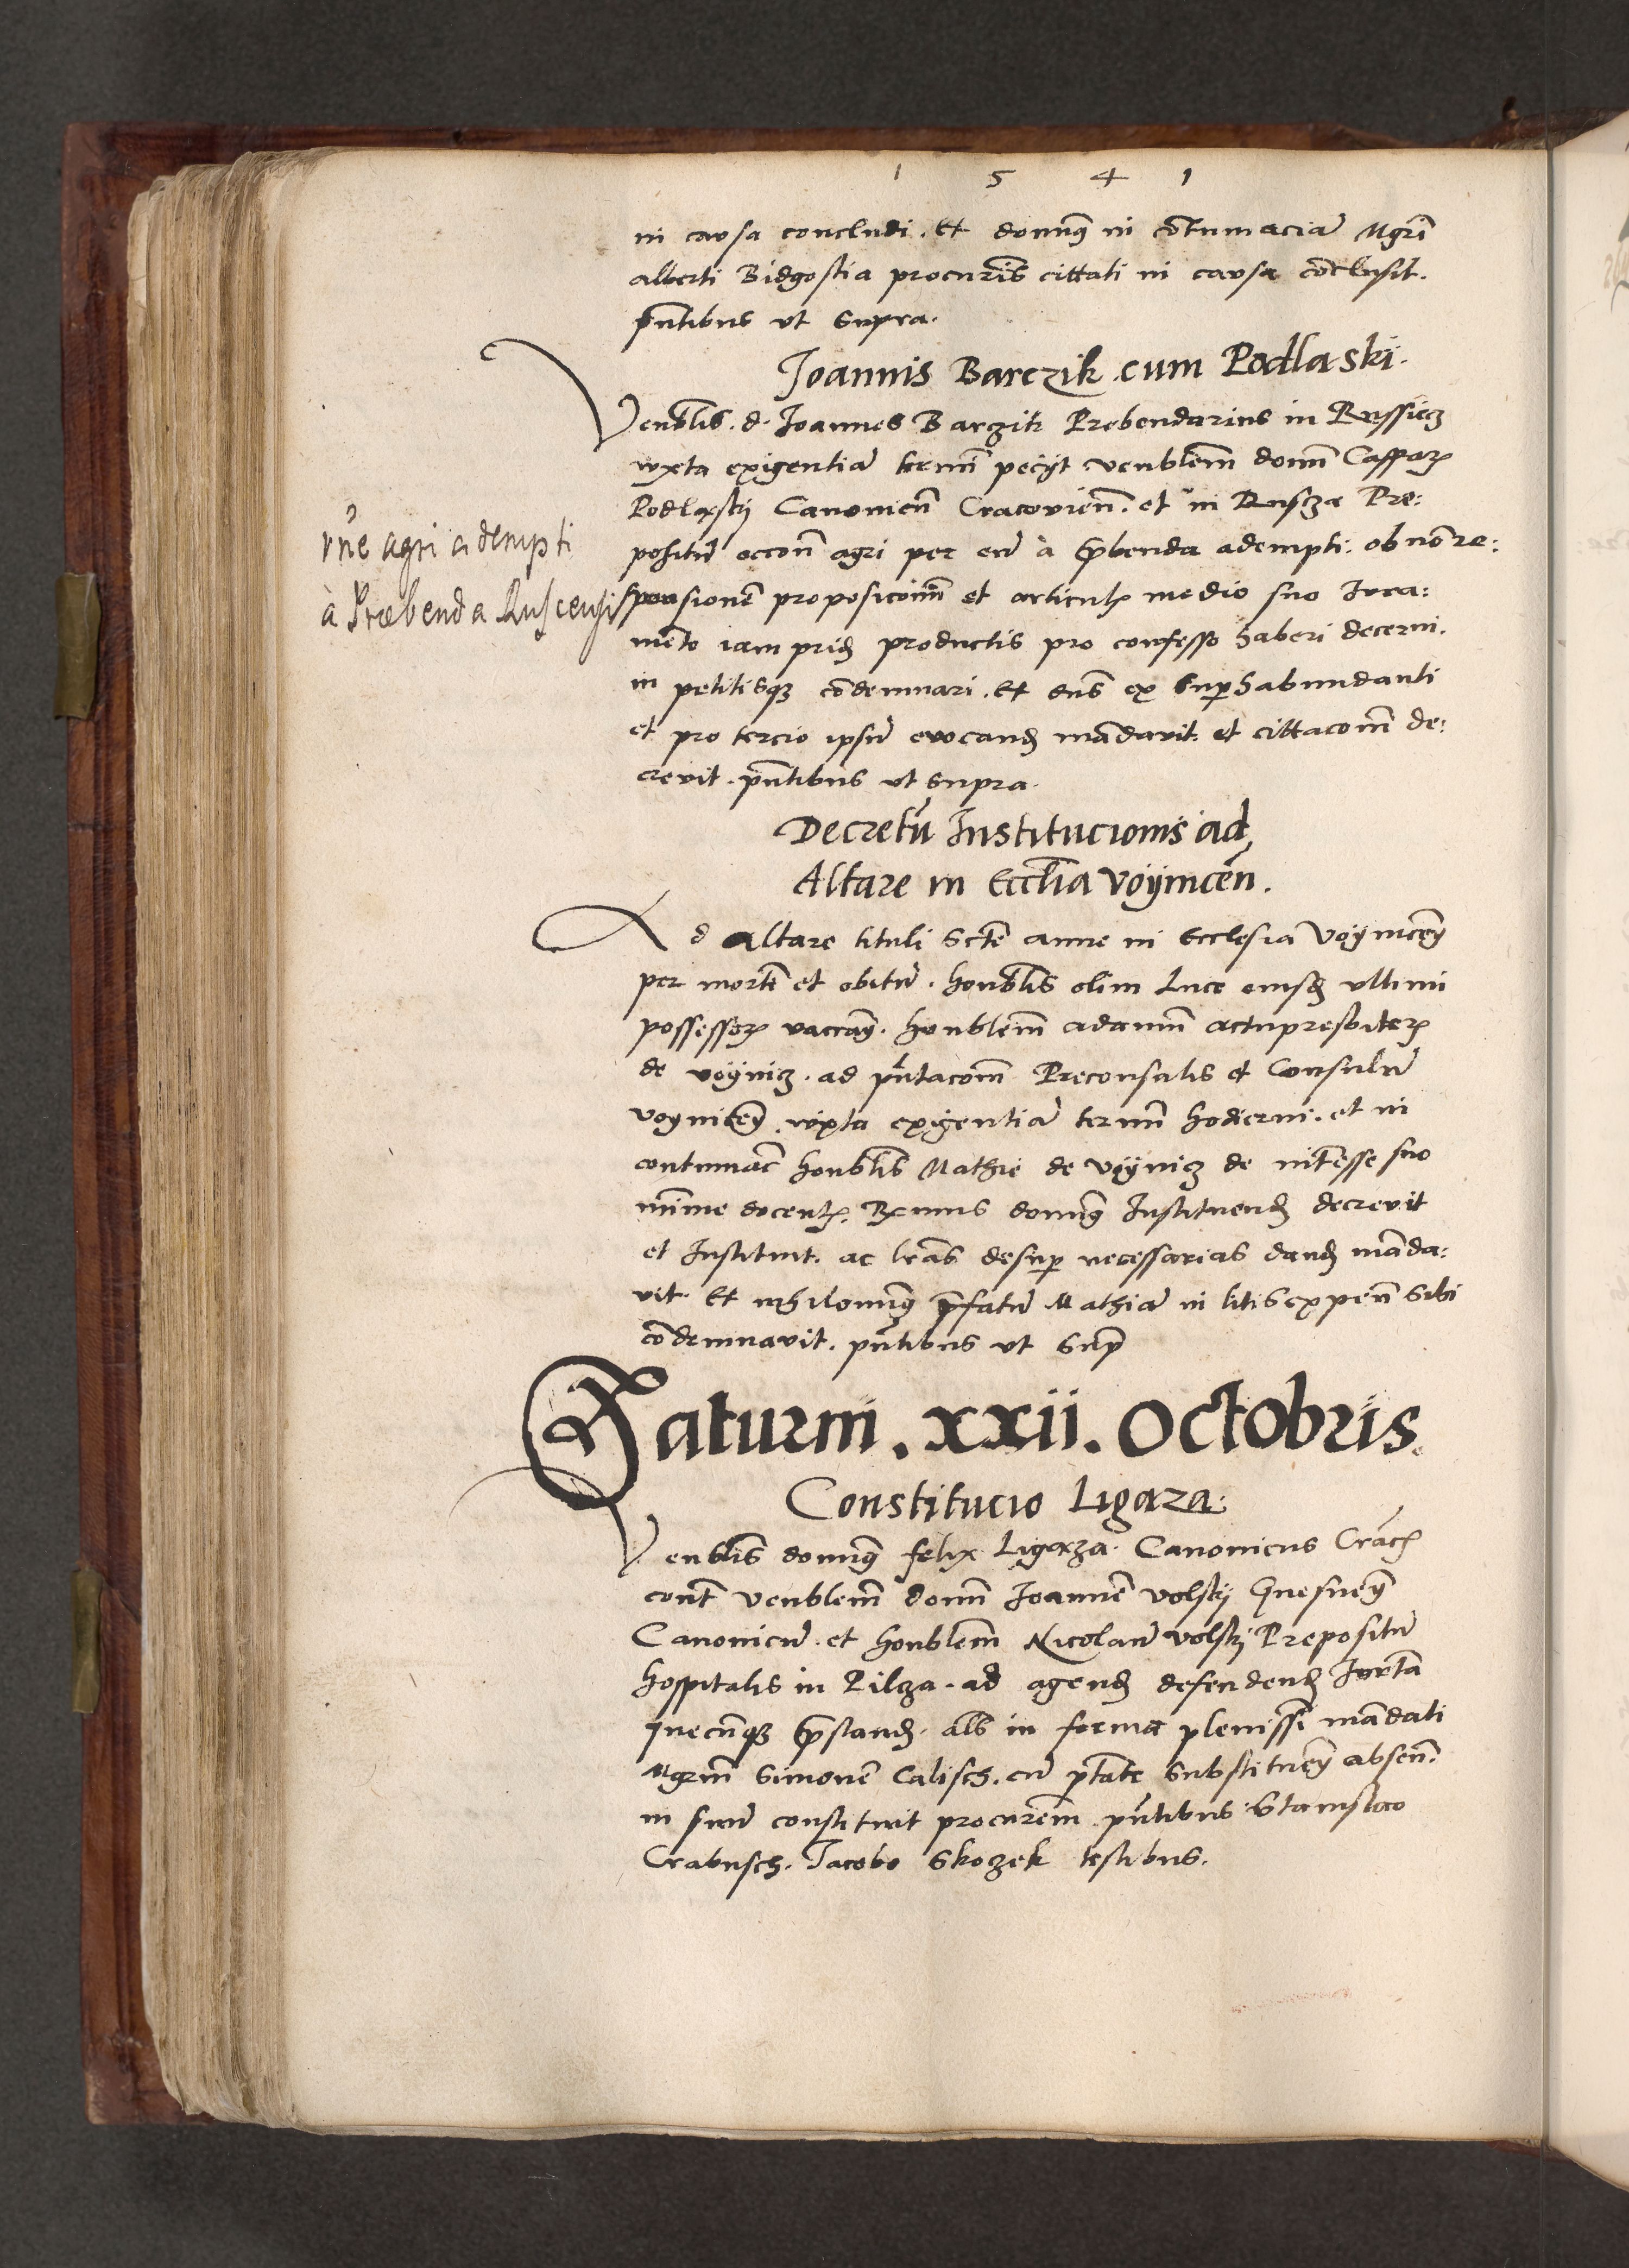 1 5 4 1
in causa concludi. Et domig in cõtumaciã Mgrĩ
alberti Bidgostia procur̃is cittati in causa cõclusit.
pñtibus ut supra.
Joannis Barczik cum Podlaski.
Venblis. d. Joannes Barzik Prebendarius in Russiecz
iuxta exigentiã termĩ pecijt venblem̃ domñ Caspar
Podlaskij Canonicũ Cracovien̄. et in Ruscza Pre:
positũ occon̄ agri per eũ à p̃benda adempti. ob non re:
sponsionẽ proposiciom̃ et articulor medio suo Jura:
mẽto iam prid productis pro confesso haberi decerni.
in petitisqz cõdemnari. Et dñs ex superhabundanti
et pro tercio ipsũ evocand mãdavit et cittacõm de:
crevit. pñtibus ut supra.
rñe agri adempti
à Præbenda Ruscensi
Decretũ Institucionis ad
Altare in Eccl̃ia Voÿnicen̄.
Ad altare tituli Scte anne in Ecclesia Voÿnicen
per mortẽ et obitũ. honblis olim Luce eiusd ultimi
possessor vacan. honblem̃ adamũ actupresbiter
de voÿnicz. ad pñtacõm Preconsulis et Consulũ
voynicen iuxta exigentiã termĩ hodierni. et in
contumac̃ honblis Mathie de vÿynicz de int̃esse suo
mĩime docent. Rx mus domig Instituend decrevit
et Instituit. ac lr̃as desup necessarias dand mãda:
vit. Et nihilomig p̃fatũ Mathiã in litis expen̄ sibi
cõdemnavit. pñtibus ut sup̃
Saturni. xxii. Octobris
Constitucio Ligaza.
Venblis domig felix Ligaza. Canonicus Crac̃
cont̃ venblem̃ domñ Joannẽ volskij Gnesnen
Canonicũ. et honblem̃ Nicolaũ volskij Prepositũ
hospitalis in Pilza. ad agend defendend Jurta
quecũqz p̃stand. als in forma plenissĩ mãdati
Mgrm̃ Simonẽ Calisch. cũ p̃tate substituen absen̄.
in suũ constituit procurem̃ pñtibus Stanislao
Crabusch. Jacobo Skozek testibus.